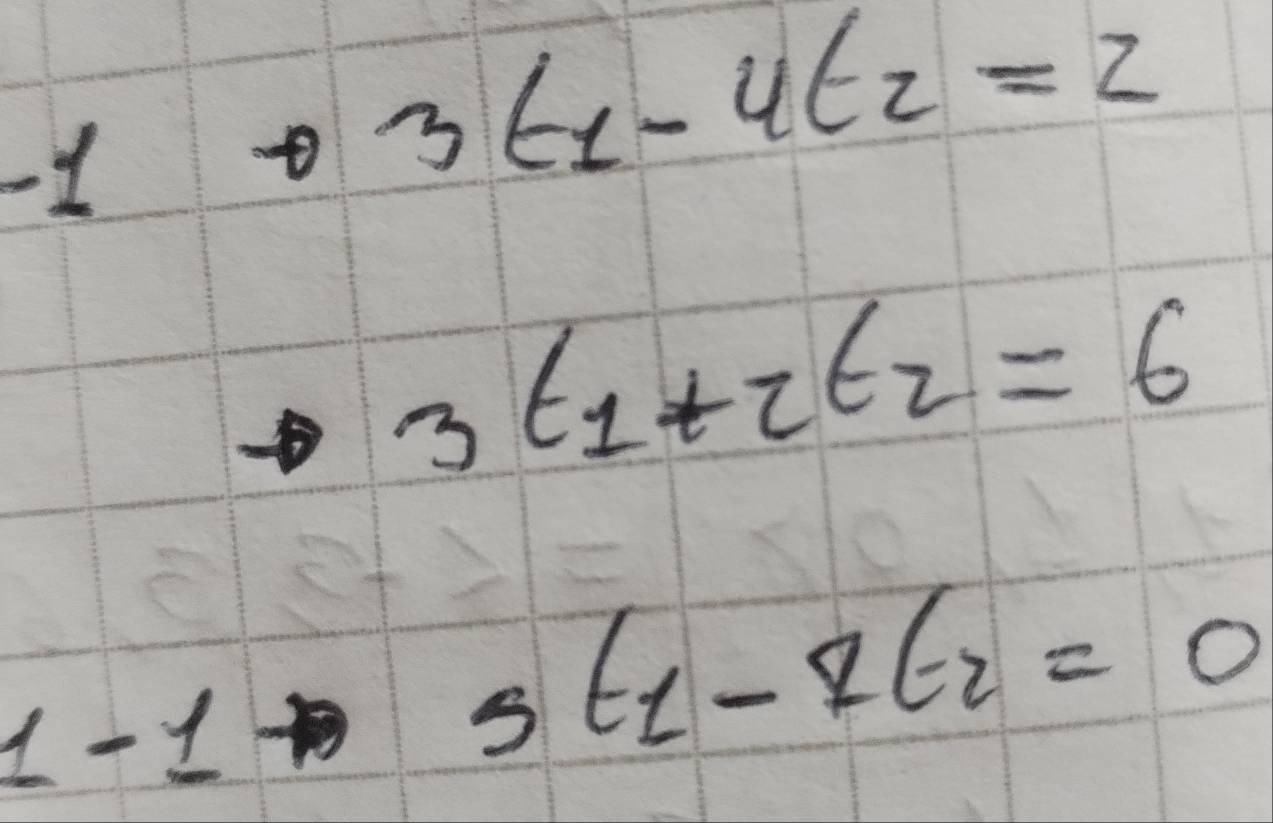 -1 → 3t1 - 4t2 = 2
→ 3t1 + 2t2 = 6
1 - 1 → 5t1 - t2 = 0